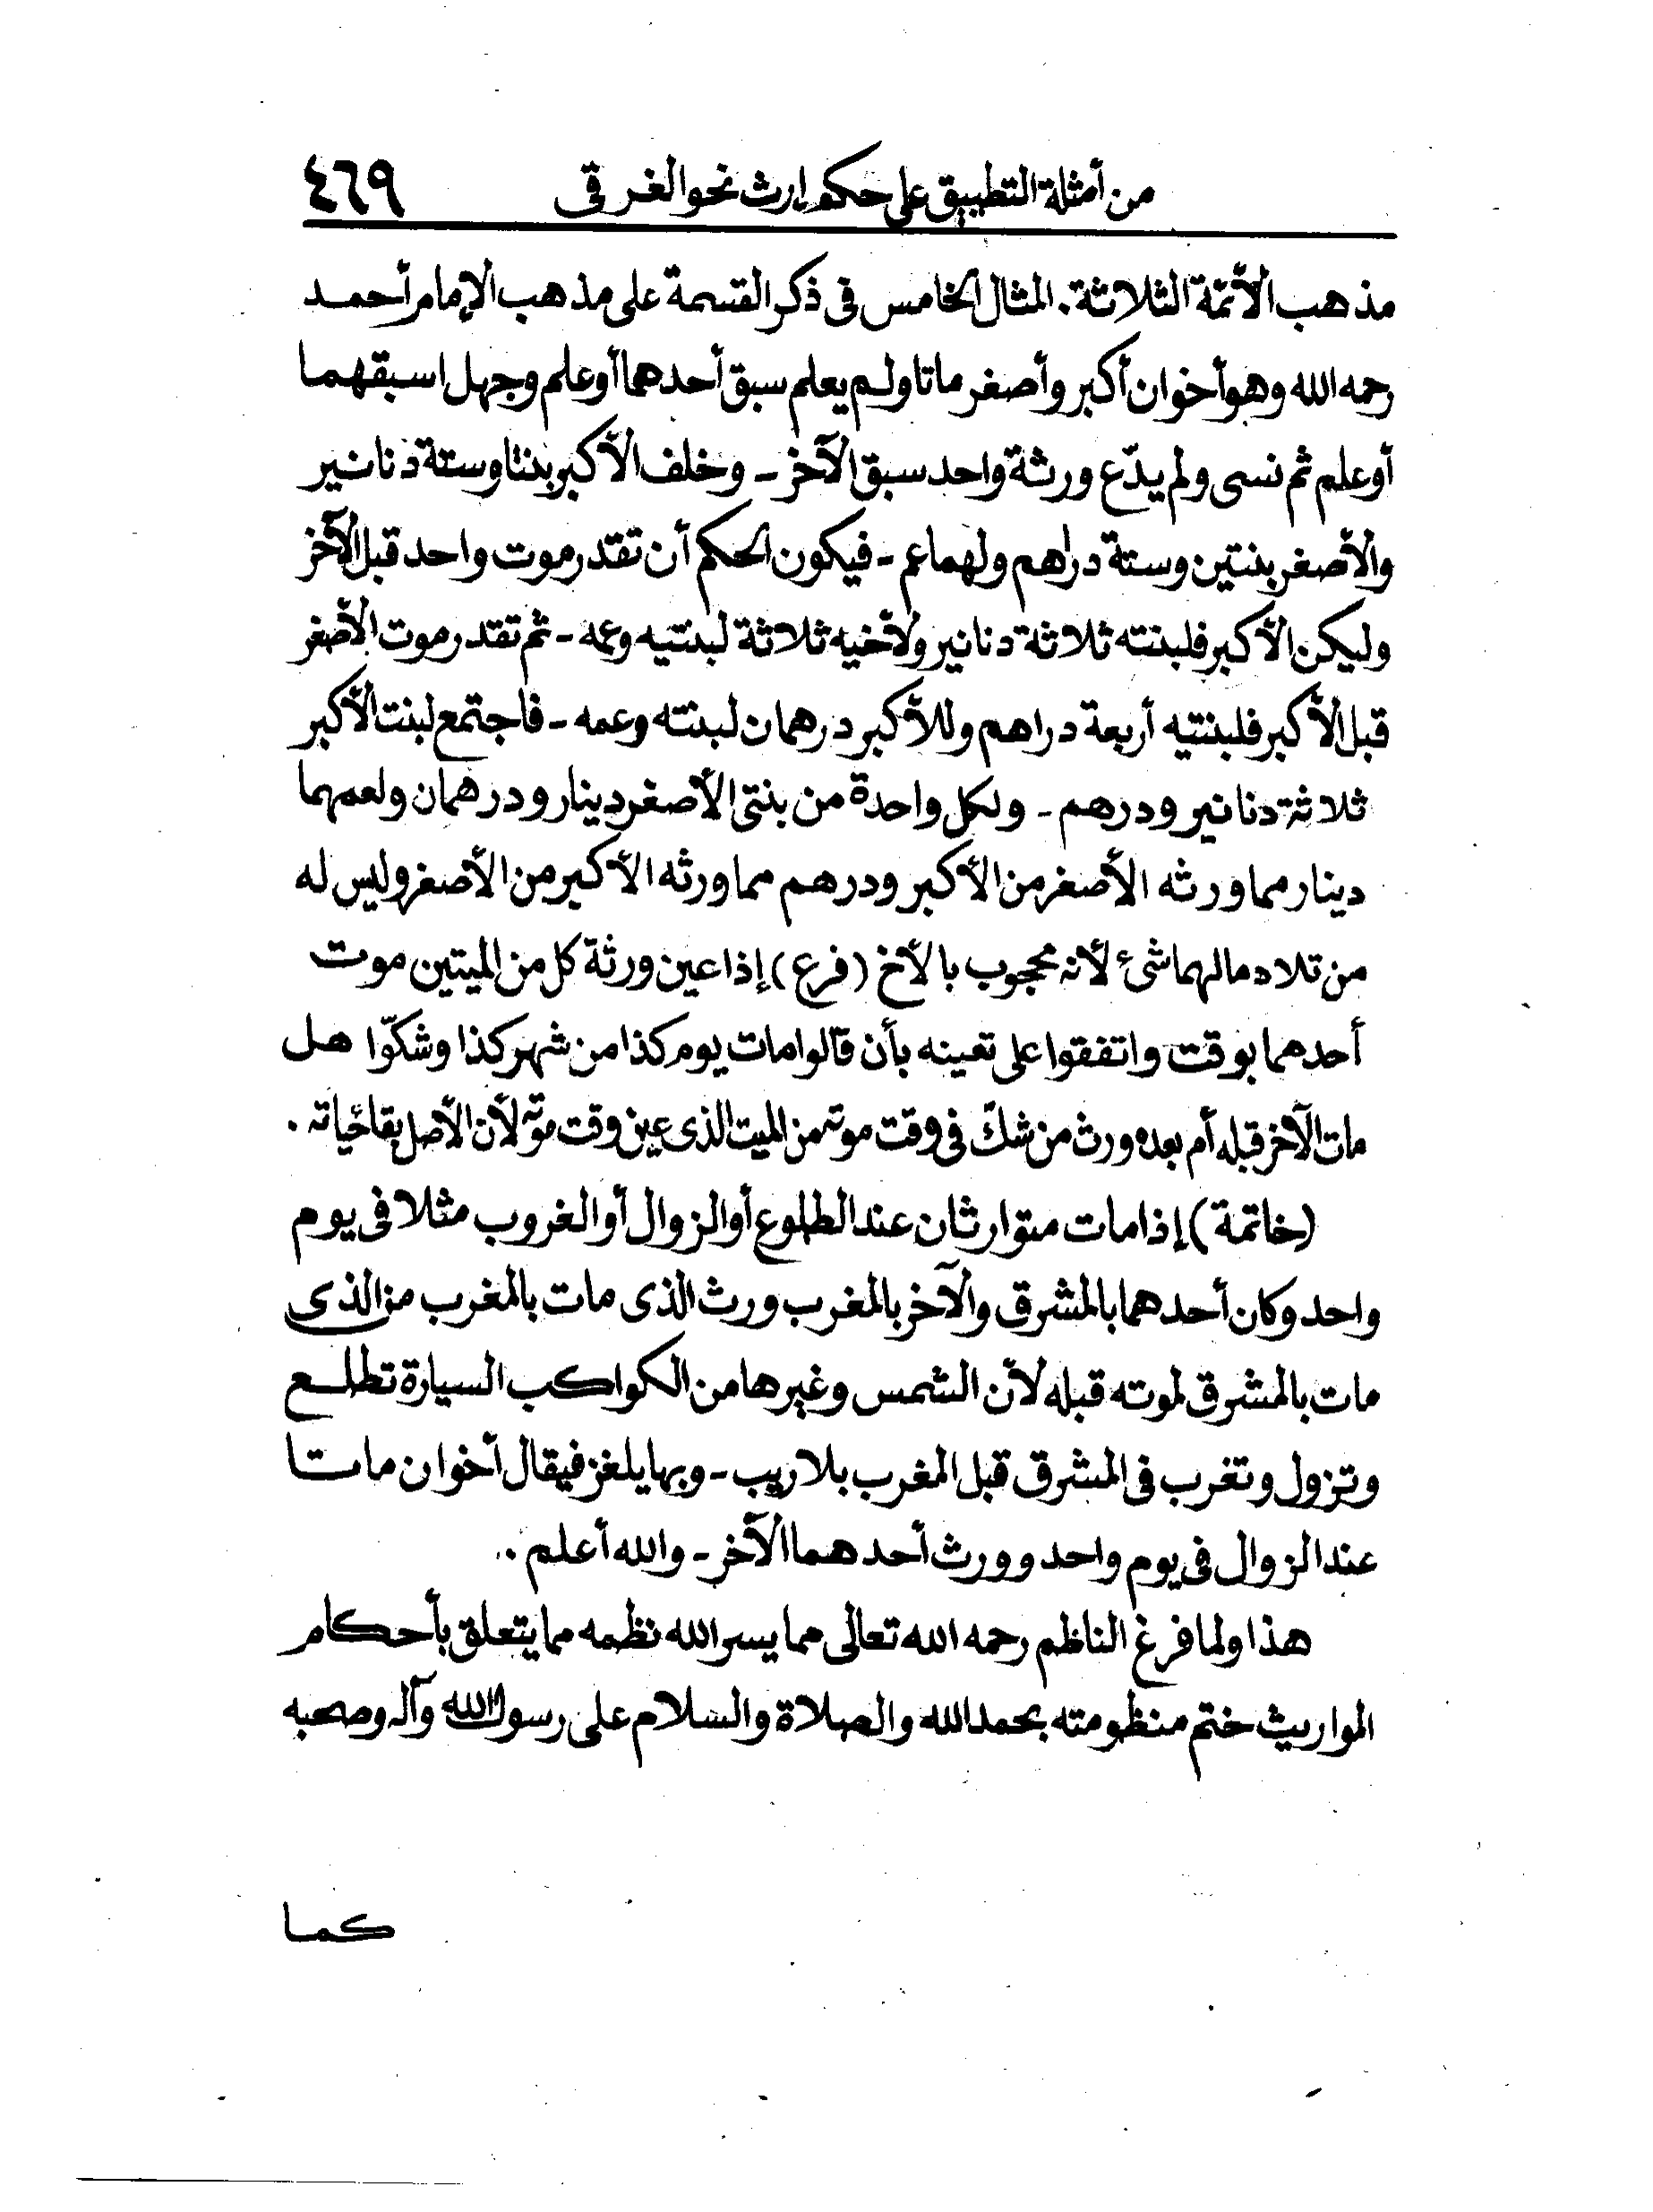 من أمثلة التطبيق على حكم إرث نحو الغرقى ٤٦٩
مذهب الأئمة الثلاثة. المثال الخامس فى ذكر القسمة على مذهب الإمام أحمد
رحمه الله وهو أخوان أكبر وأصغر ماتا ولم يعلم سبق أحدهما أو علم وجهل اسبقهما
أو علم ثم نسى ولم يدّع ورثة واحد سبق الآخر - وخلف الأكبر بنتا وستة دنانير
والأصغر بنتين وستة دراهم ولهما عم - فيكون الحكم أن تقدر موت واحد قبل الآخر
وليكن الأكبر فلبنته ثلاثة دنانير ولأخيه ثلاثة لبنتيه وعمه - ثم تقدر موت الأصغر
قبل الأكبر فلبنتيه أربعة دراهم وللأكبر درهمان لبنته وعمه - فاجتمع لبنت الأكبر
ثلاثة دنانير ودرهم - ولكل واحدة من بنتى الأصغر دينار ودرهمان ولعمهما
دينار مما ورثه الأصغر من الأكبر ودرهم مما ورثه الأكبر من الأصغر وليس له
من تلاد مالهما شىء لأنه محجوب بالأخ (فرع) إذا عين ورثة كل من الميتين موت
أحدهما بوقت واتفقوا على تعينه بأن قالوا مات يوم كذا من شهر كذا وشكّوا هل
مات الآخر قبله أم بعده ورث من شكّ فى وقت موته من الميت الذى عين وقت موته لأن الأصل بقاء حياته.
(خاتمة) إذا مات متوارثان عند الطلوع أو الزوال أو الغروب مثلا فى يوم
واحد وكان أحدهما بالمشرق والآخر بالمغرب ورث الذى مات بالمغرب من الذى
مات بالمشرق لموته قبله لأن الشمس وغيرها من الكواكب السيارة تطلع
وتزول وتغرب فى المشرق قبل المغرب بلا ريب - وبها يلغز فيقال أخوان ماتا
عند الزوال فى يوم واحد وورث أحدهما الآخر - والله أعلم.
هذا ولما فرغ الناظم رحمه الله تعالى مما يسر الله نظمه مما يتعلق بأحكام
المواريث ختم منظومته بحمد الله والصلاة والسلام على رسول الله وآله وصحبه
كما